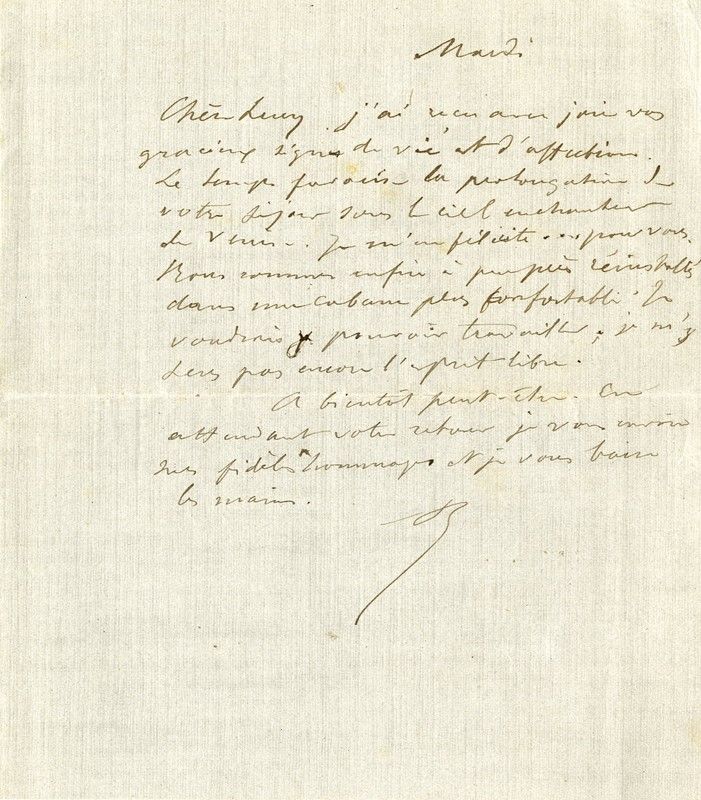 Mardi
Chère j'ai reçu avec joie vos
gracieux signes de vie et d'affection.
Le temps favorise la prolongation de
votre séjour sous le ciel enchanteur
de Venise. Je m'en félicite ... pour vous.
Nous sommes enfin à peu près réinstallés
dans une cabane plus confortable. Je
voudrais pouvoir travailler; je ne m'y
sens pas encore l'esprit libre.
A bientôt peut-être. En
attendant votre retour je vous envoie
mes fidèles hommages et je vous baise
les mains.